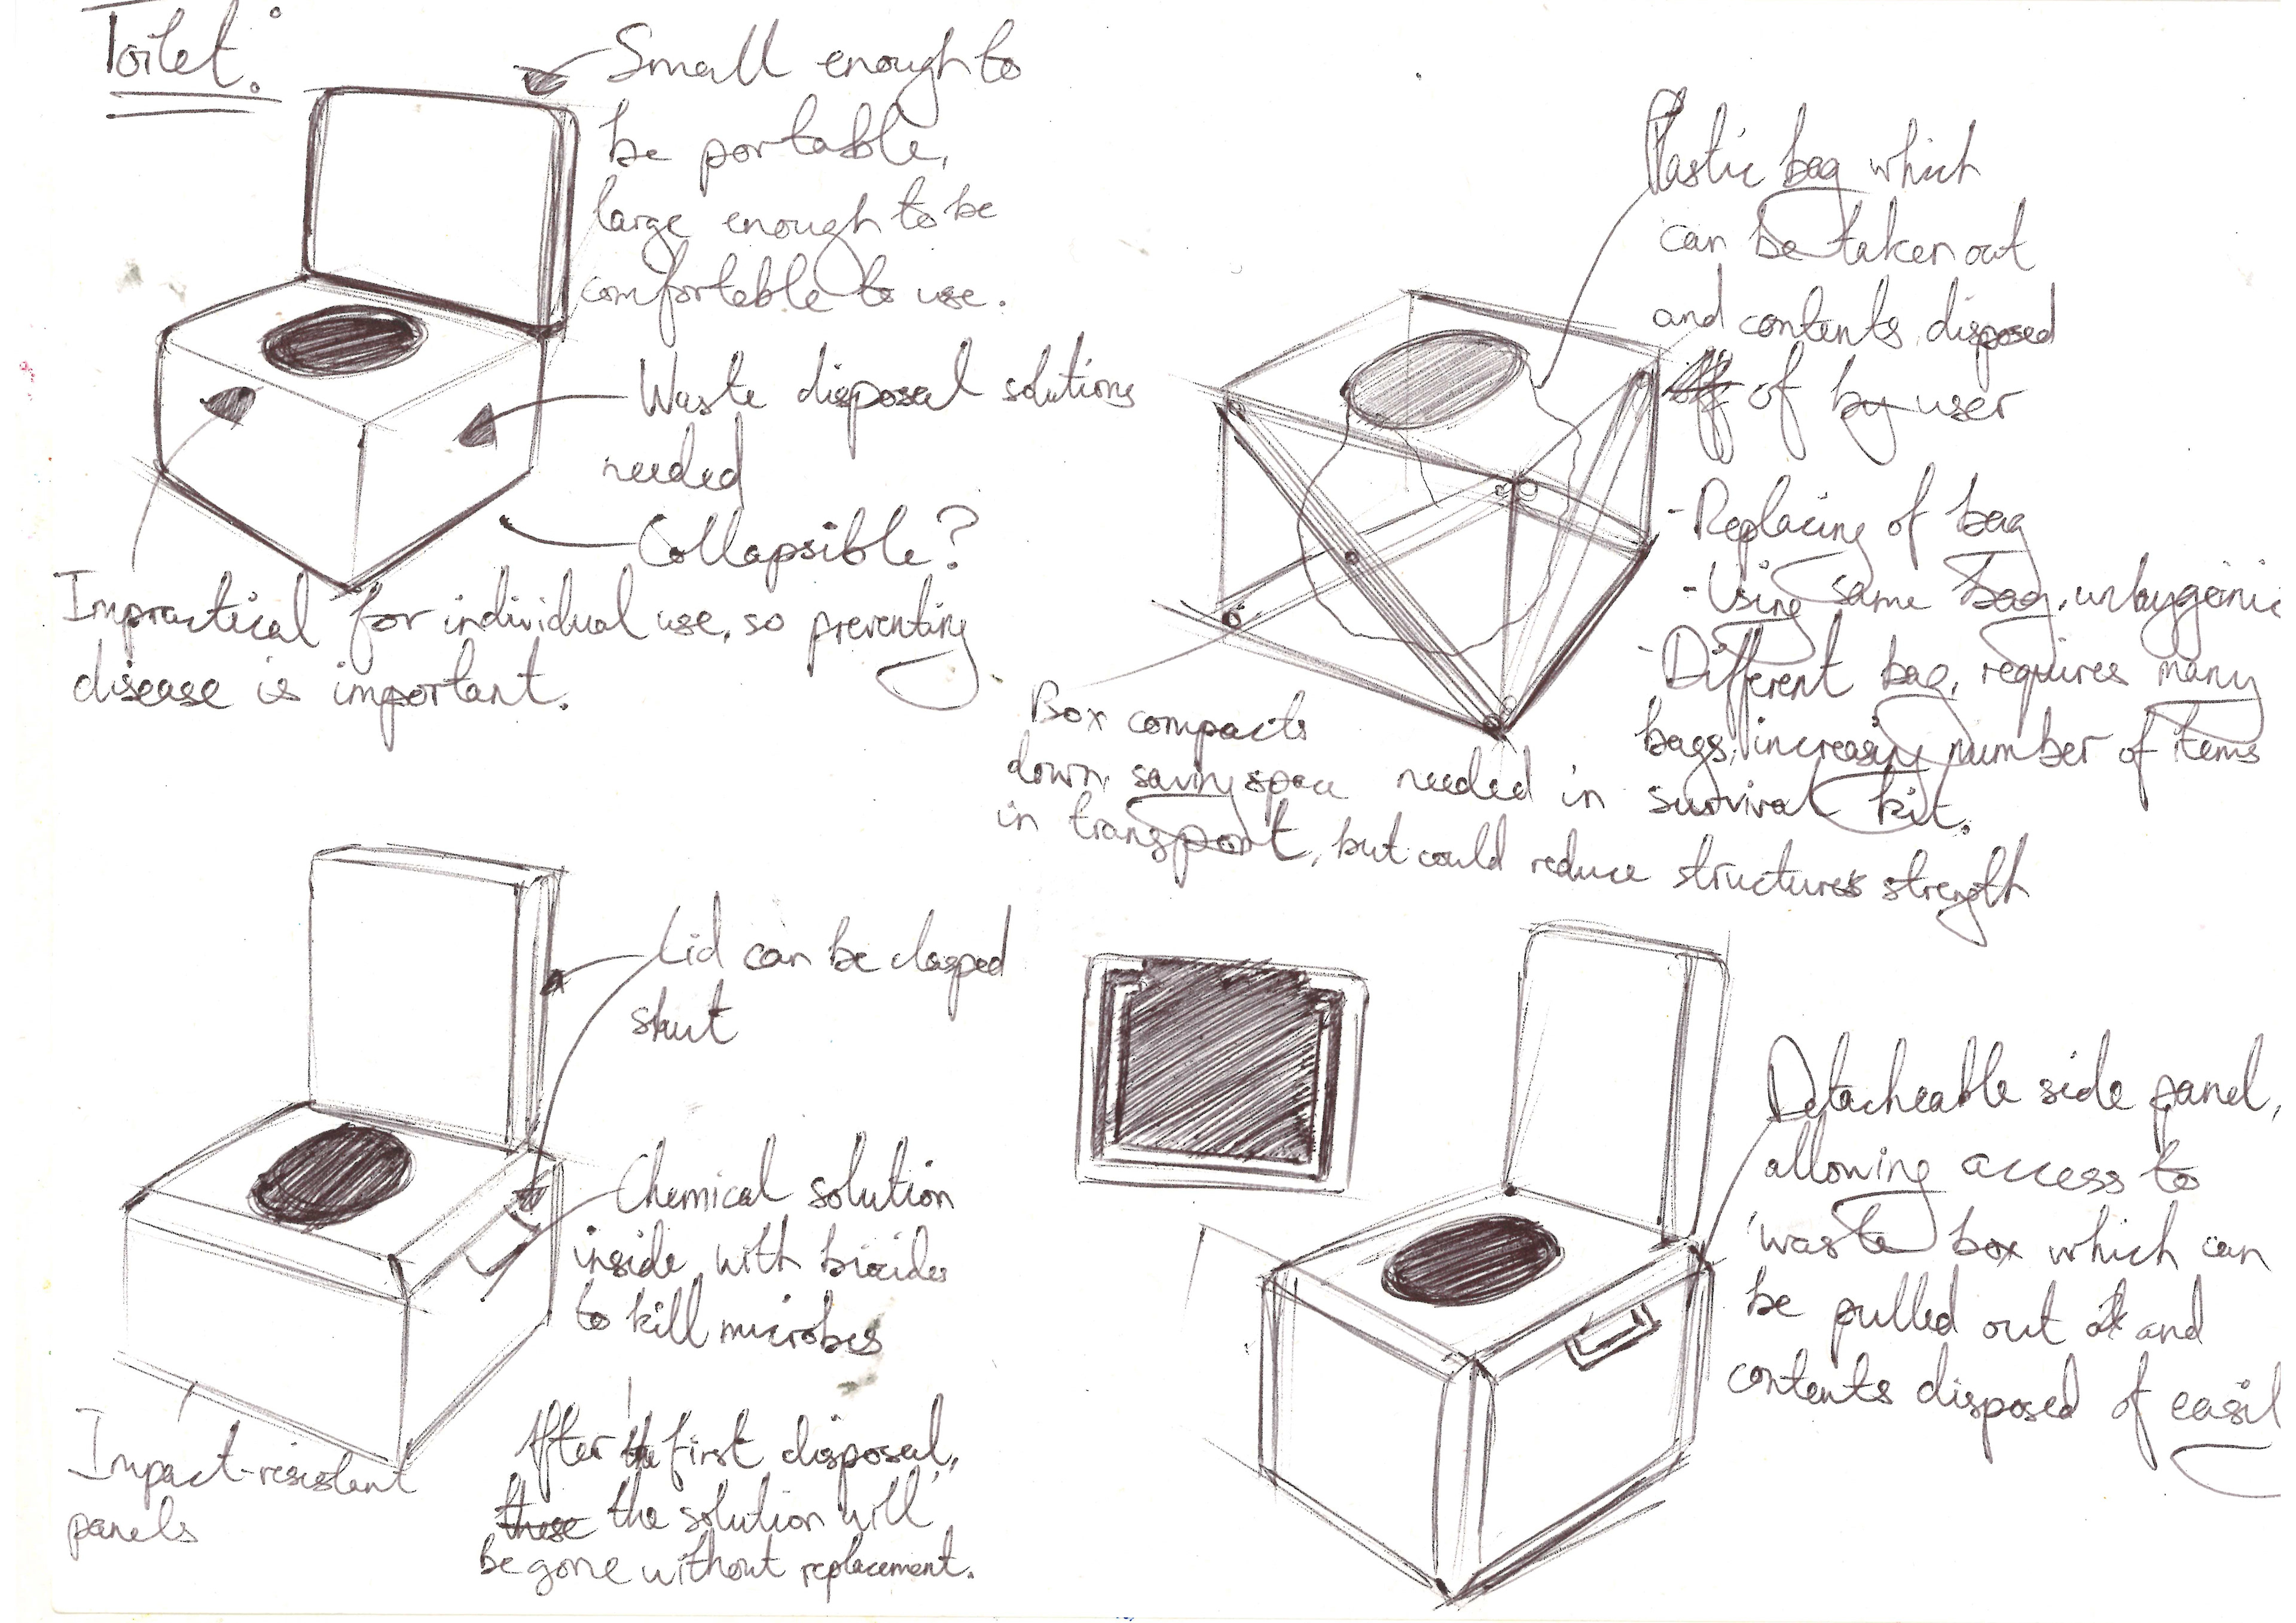 Toilet:
Small enough to
be portable,
large enough to be
comfortable to use.
Waste disposal solutions
needed
Collapsible?
Impractical for individual use, so preventing
disease is important.
Plastic bag which
can be taken out
and contents disposed
of by user
- Replacing of bag
- Using same bag, unhygenic
- Different bag, requires many
bags, increasing number of items
needed in survival kit.
Box compacts
down, saving space
in transport, but could reduce structures strength
Lid can be clasped
shut
Chemical solution
inside, with biocides
to kill microbes
After the first disposal,
these the solution will
be gone without replacement.
Impact-resistant
panels
Detacheable side panel,
allowing access to
waste box which can
be pulled out and
contents disposed of easil